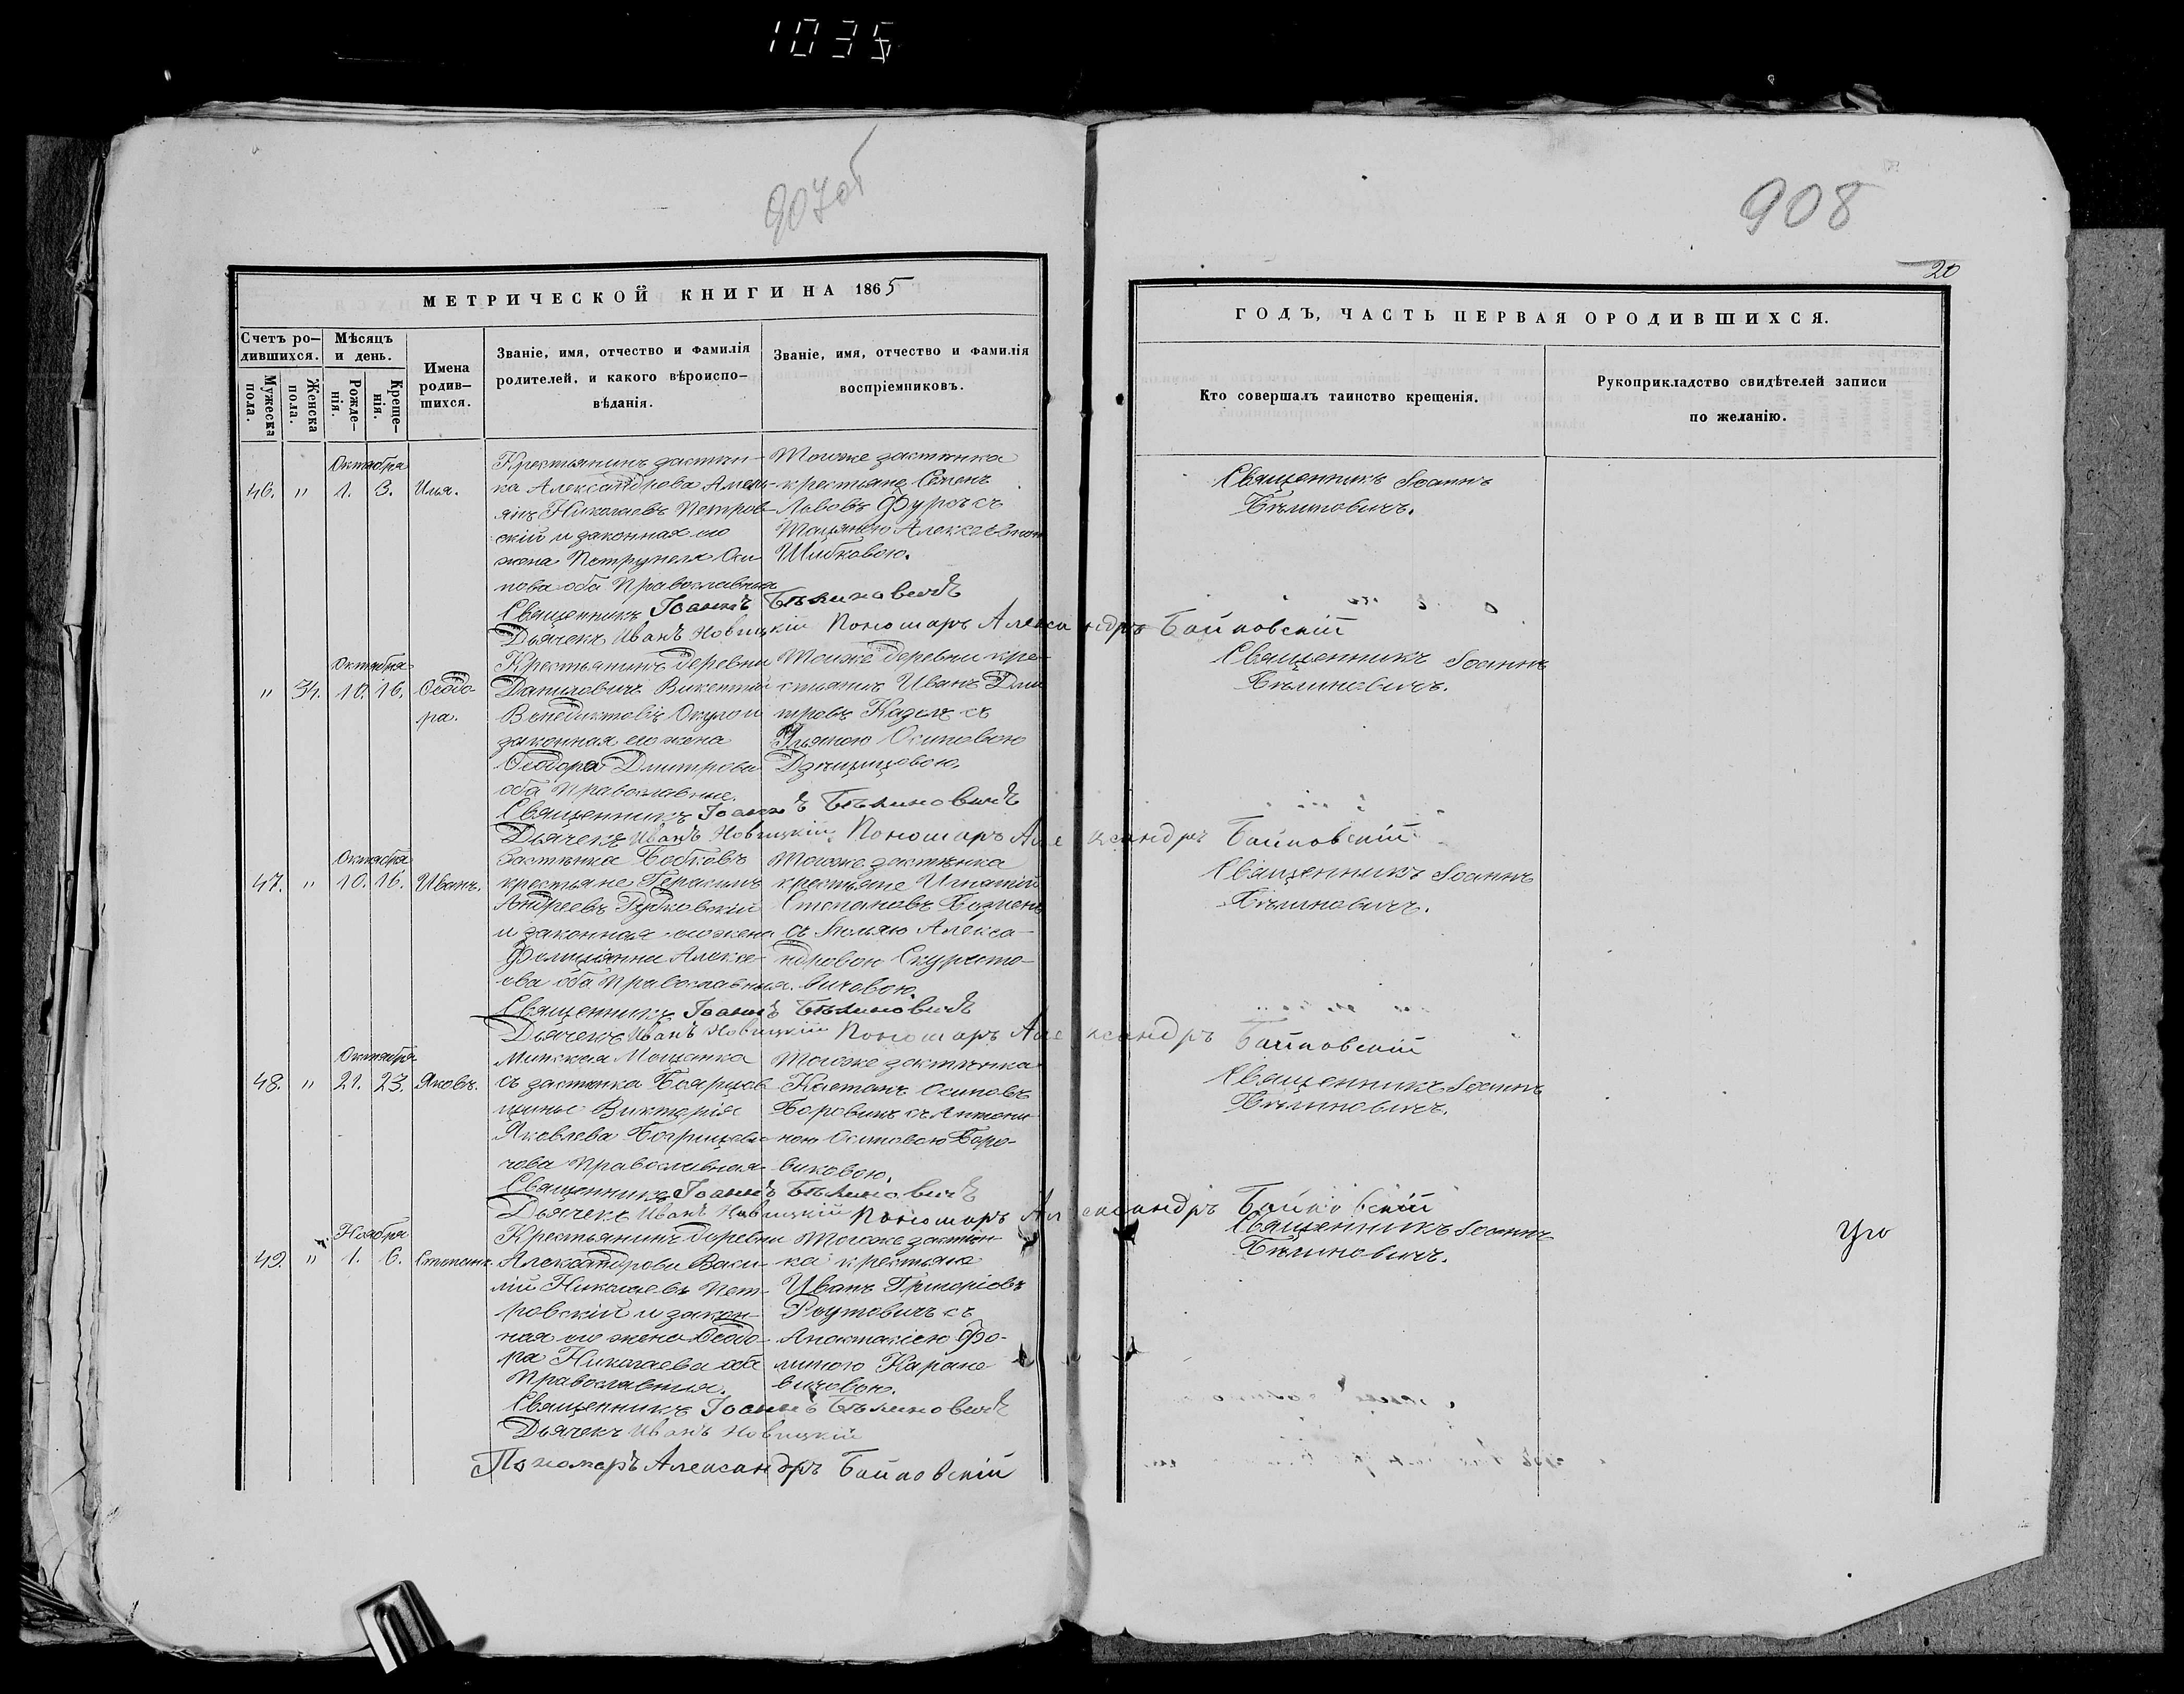 1035
907об
908
20
МЕТРИЧЕСКОЙ КНИГИ НА 1865
Счетъ ро-
дившихся.
Мужеска
пола.
Женска
пола.
Мѣсяцъ
и день.
Рожде-
нія.
Креще-
нія.
Имена
родив-
шихся.
Званіе, имя, отчество и фамилія
родителей, и какого вѣроиспо-
вѣданія.
Званіе, имя, отчество и фамилія
воспріемниковъ.
ГОДЪ, ЧАСТЬ ПЕРВАЯ О РОДИВШИХСЯ.
Кто совершалъ таинство крещенія.
Рукоприкладство свидѣтелей записи
по желанію.
Октября
46. " 1. 3. Илья.
Крестьянинъ застѣн-
ка Александрова Амель-
янъ Николаевъ Петров-
скій и законная его
жена Петрунеля Оси
пова оба Православныя
Тогоже застѣнка
крестьяне Семенъ
Львовъ Фурсъ съ
Шибковою.
Священникъ Іоаннъ
Бѣлиновичъ.
Священникъ Іоаннъ Бѣлиновичъ
Дьячекъ Иванъ Новицкій Пономарь Александръ Байковскій
Октября
" 34. 10. 16. Ѳеодо
ра.
Крестьянинъ деревни
Даниловичъ Викентій
Венедиктовъ Окуло и
законная его жена
Ѳеодора Дмитрова
оба Православные.
Тоиже деревни кре-
стьянинъ Иванъ Дми
тровъ Казелъ съ
Осиповою
Священникъ Іоаннъ
Бѣлиновичъ.
Священникъ Іоаннъ Бѣлиновичъ
Дьячекъ Иванъ Новицкій Пономарь Александръ Байковскій
Октября
47. " 10. 16. Иванъ.
Застѣнка Бобковъ
крестьяне Герасимъ
Андреевъ Рудковскій
и законная его жена
Фелиціянна Алексе-
ева оба Православныя.
Тогоже застѣнка
крестьяне Игнатій
Степановъ
съ Алекса-
ндровою Скурато-
вичовою.
Священникъ Іоаннъ
Бѣлиновичъ.
Священникъ Іоаннъ Бѣлиновичъ
Дьячекъ Иванъ Новицкій Пономарь Александръ Байковскій
Октября
48. " 21. 23. Яковъ.
Минская Мѣщанка
съ застѣнка Боярщов
щины Викторія
Яковлева
Православная
Тогоже застѣнка
Каетанъ Осиповъ
Боровикъ съ Антони
ною Осиповою Боро-
виковою.
Священникъ Іоаннъ
Бѣлиновичъ.
Священникъ Іоаннъ Бѣлиновичъ
Дьячекъ Иванъ Новицкій Пономарь Александръ Байковскій
Ноября
49. " 1. 6. Степанъ.
Крестьянинъ деревни
Александрови Васи-
лій Николаевъ Пет-
ровскій и закон-
ная его жена Ѳеодо-
ра Николаева оба
Православныя.
Тогоже застѣн-
ка крестьяне
Иванъ Григоріовъ
Реутовичъ съ
Анастасіею Фо-
миною Каране
вичовою.
Священникъ Іоаннъ
Бѣлиновичъ.
Священникъ Іоаннъ Бѣлиновичъ
Дьячекъ Иванъ Новицкій
Пономарь Александръ Байковскій